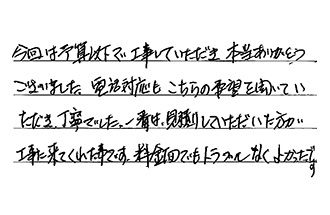 今回は予算以下で工事していただき 本当ありがとう
ございました。電話対応も こちらの希望を聞いてい
ただき、丁寧でした。一番は、見積りしていただいた方が
工事に来てくれた事です。料金面でもトラブルなくよかったです